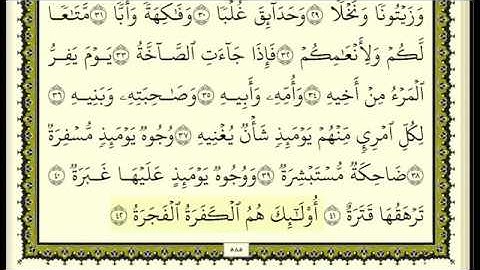 وَزَيْتُونًا وَنَخْلًا ٢٩ وَحَدَآئِقَ غُلْبًا ٣٠ وَفَٰكِهَةً وَأَبًّا ٣١ مَّتَٰعًا
لَّكُمْ وَلِأَنْعَٰمِكُمْ ٣٢ فَإِذَا جَآءَتِ ٱلصَّآخَّةُ ٣٣ يَوْمَ يَفِرُّ
ٱلْمَرْءُ مِنْ أَخِيهِ ٣٤ وَأُمِّهِۦ وَأَبِيهِ ٣٥ وَصَٰحِبَتِهِۦ وَبَنِيهِ ٣٦
لِكُلِّ ٱمْرِئٍ مِّنْهُمْ يَوْمَئِذٍ شَأْنٌ يُغْنِيهِ ٣٧ وُجُوهٌ يَوْمَئِذٍ مُّسْفِرَةٌ
٣٨ ضَاحِكَةٌ مُّسْتَبْشِرَةٌ ٣٩ وَوُجُوهٌ يَوْمَئِذٍ عَلَيْهَا غَبَرَةٌ ٤٠
تَرْهَقُهَا قَتَرَةٌ ٤١ أُو۟لَٰٓئِكَ هُمُ ٱلْكَفَرَةُ ٱلْفَجَرَةُ ٤٢
٥٨٥